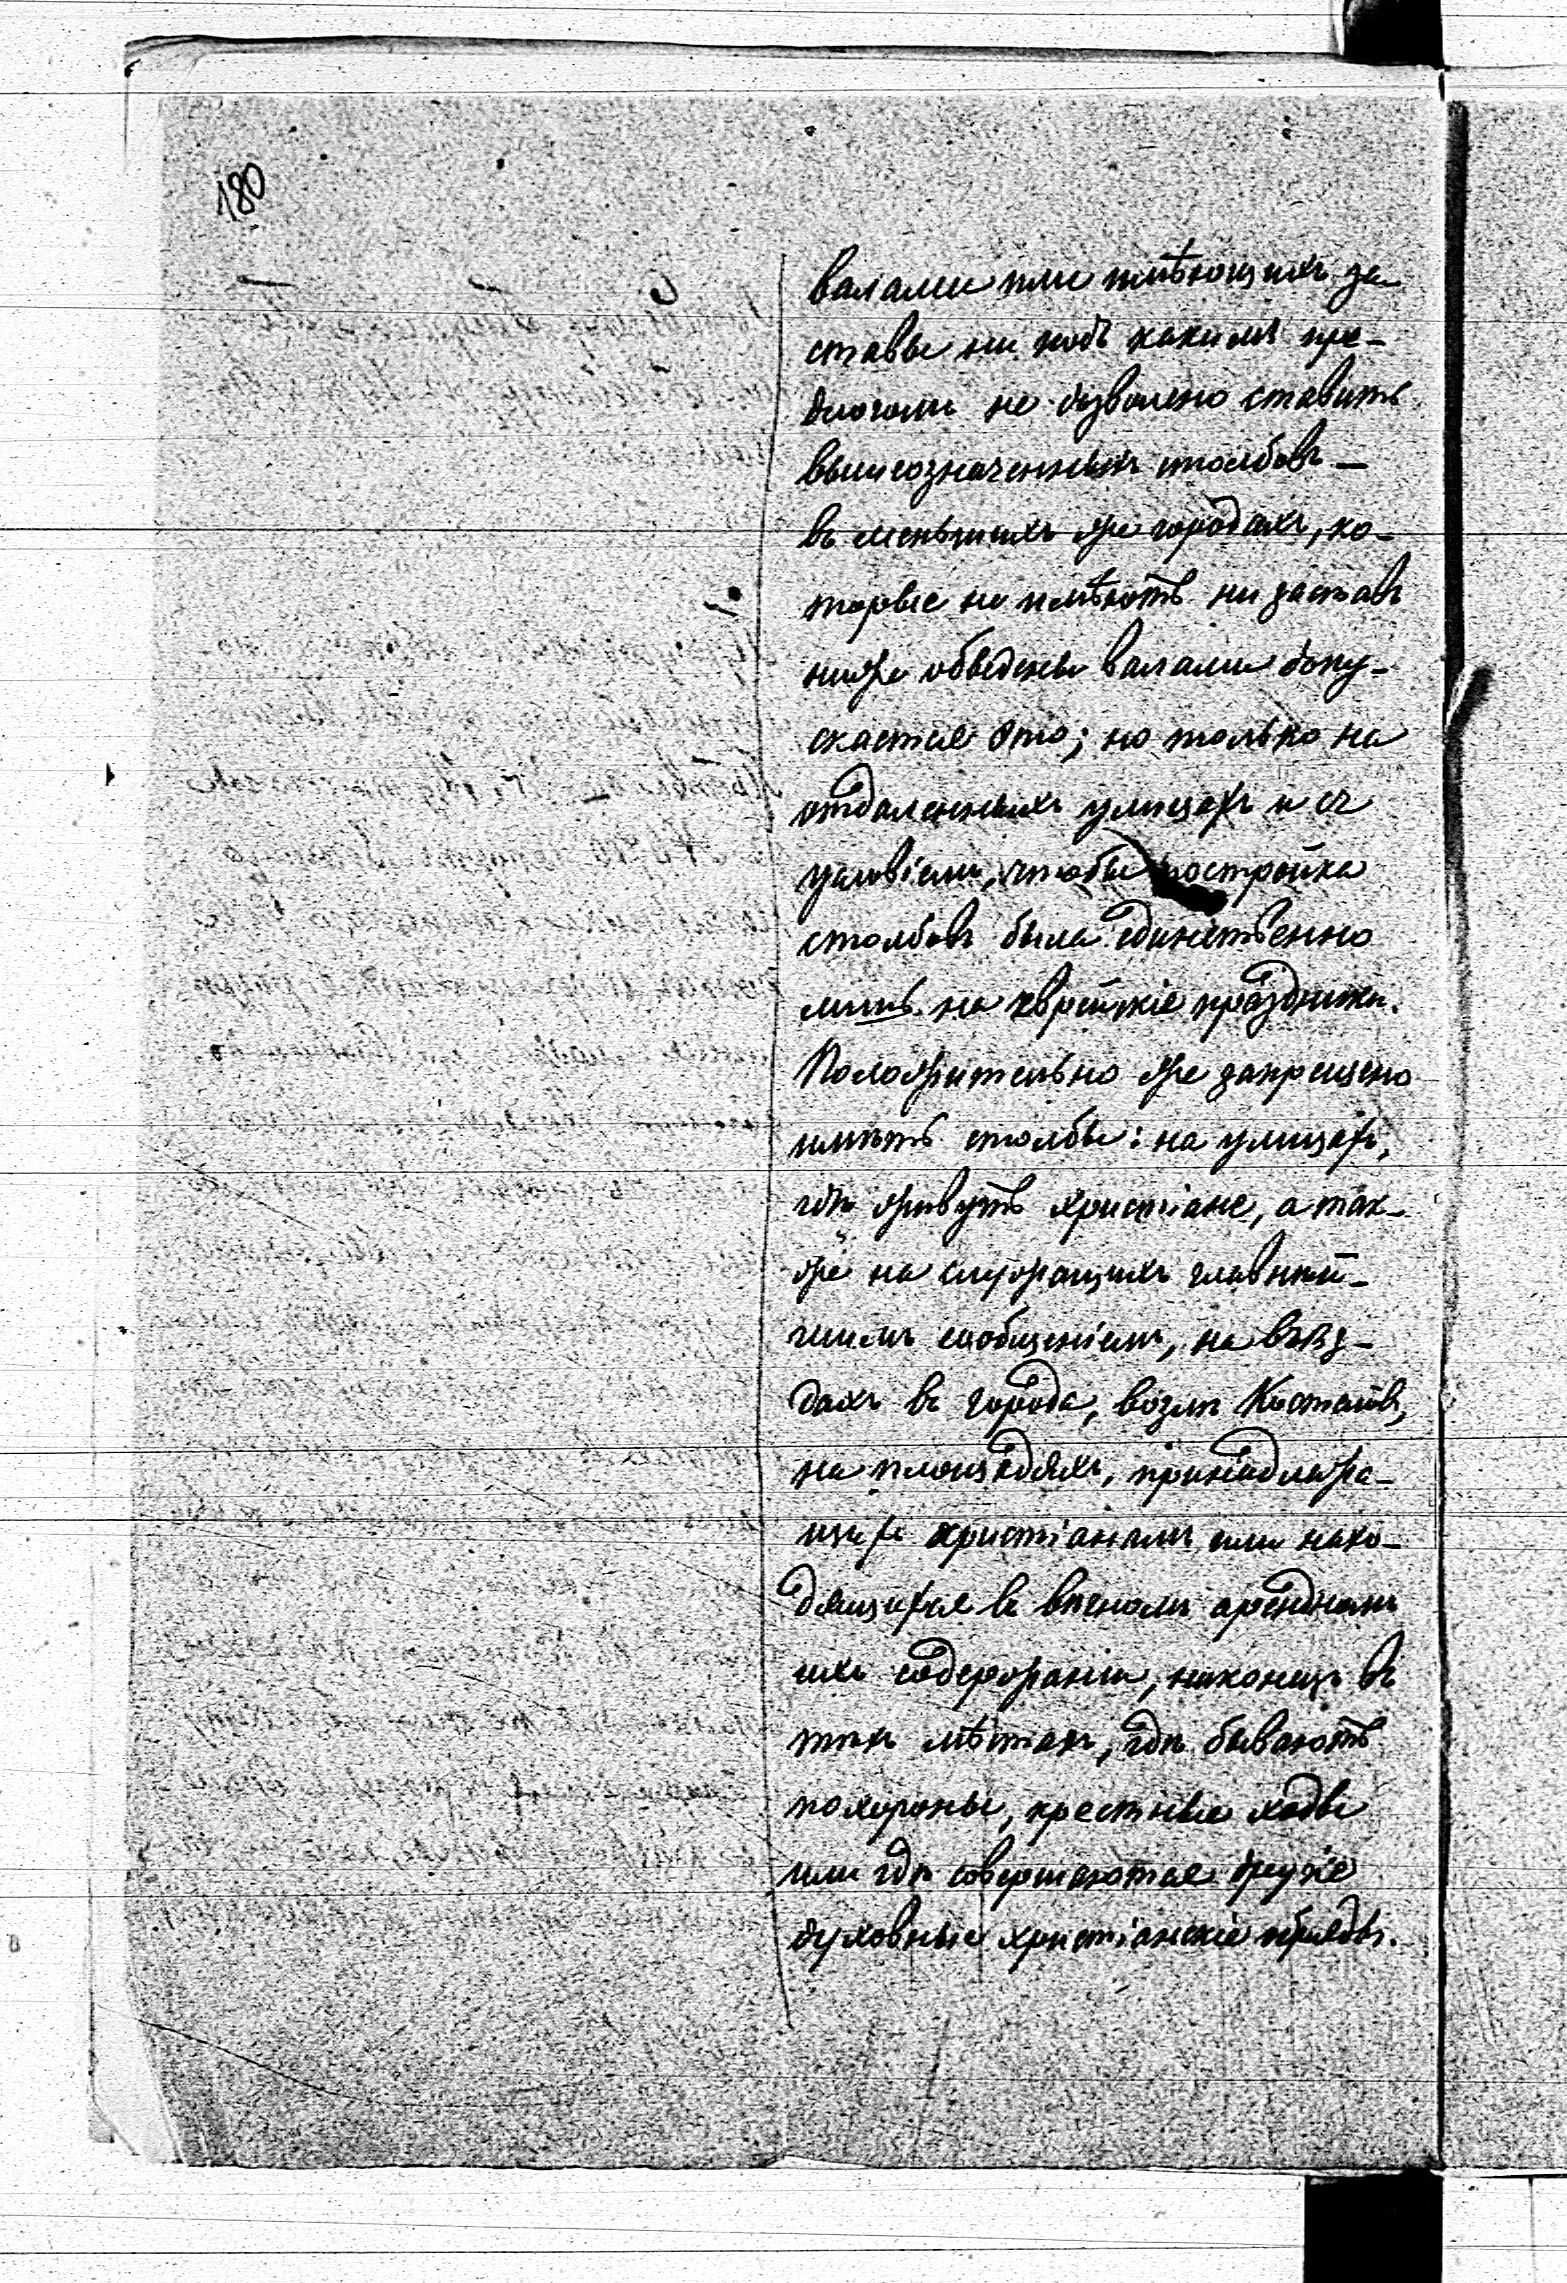 180
валами или имѣющихъ за-
ставы ни подъ какимъ пре-
длогомъ не дозволено ставить
вышеозначенныхъ столбовъ –
въ меньшихъ же городахъ, ко-
торые не имѣютъ ни заставъ
ниже обведены валами допу-
скается это; но только на
отдаленныхъ улицахъ и съ
условіемъ, чтобы постройка
столбовъ была единственно
лишь на еврейскіе праздники.
Положительно же запрещено
имѣть столбы: на улицахъ,
гдѣ живутъ христіане, а так-
же на служащихъ главнѣй-
шимъ сообщеніемъ, на въѣз-
дахъ въ города, возлѣ Костеловъ,
на площадяхъ, принадлежа-
щихъ христіанамъ или нахо-
дящихся въ вѣчномъ арендномъ
ихъ содержаніи, наконецъ въ
тѣхъ мѣстахъ, гдѣ бываютъ
похороны, крестные ходы
или гдѣ совершаются другіе
духовные христіанскіе обряды.